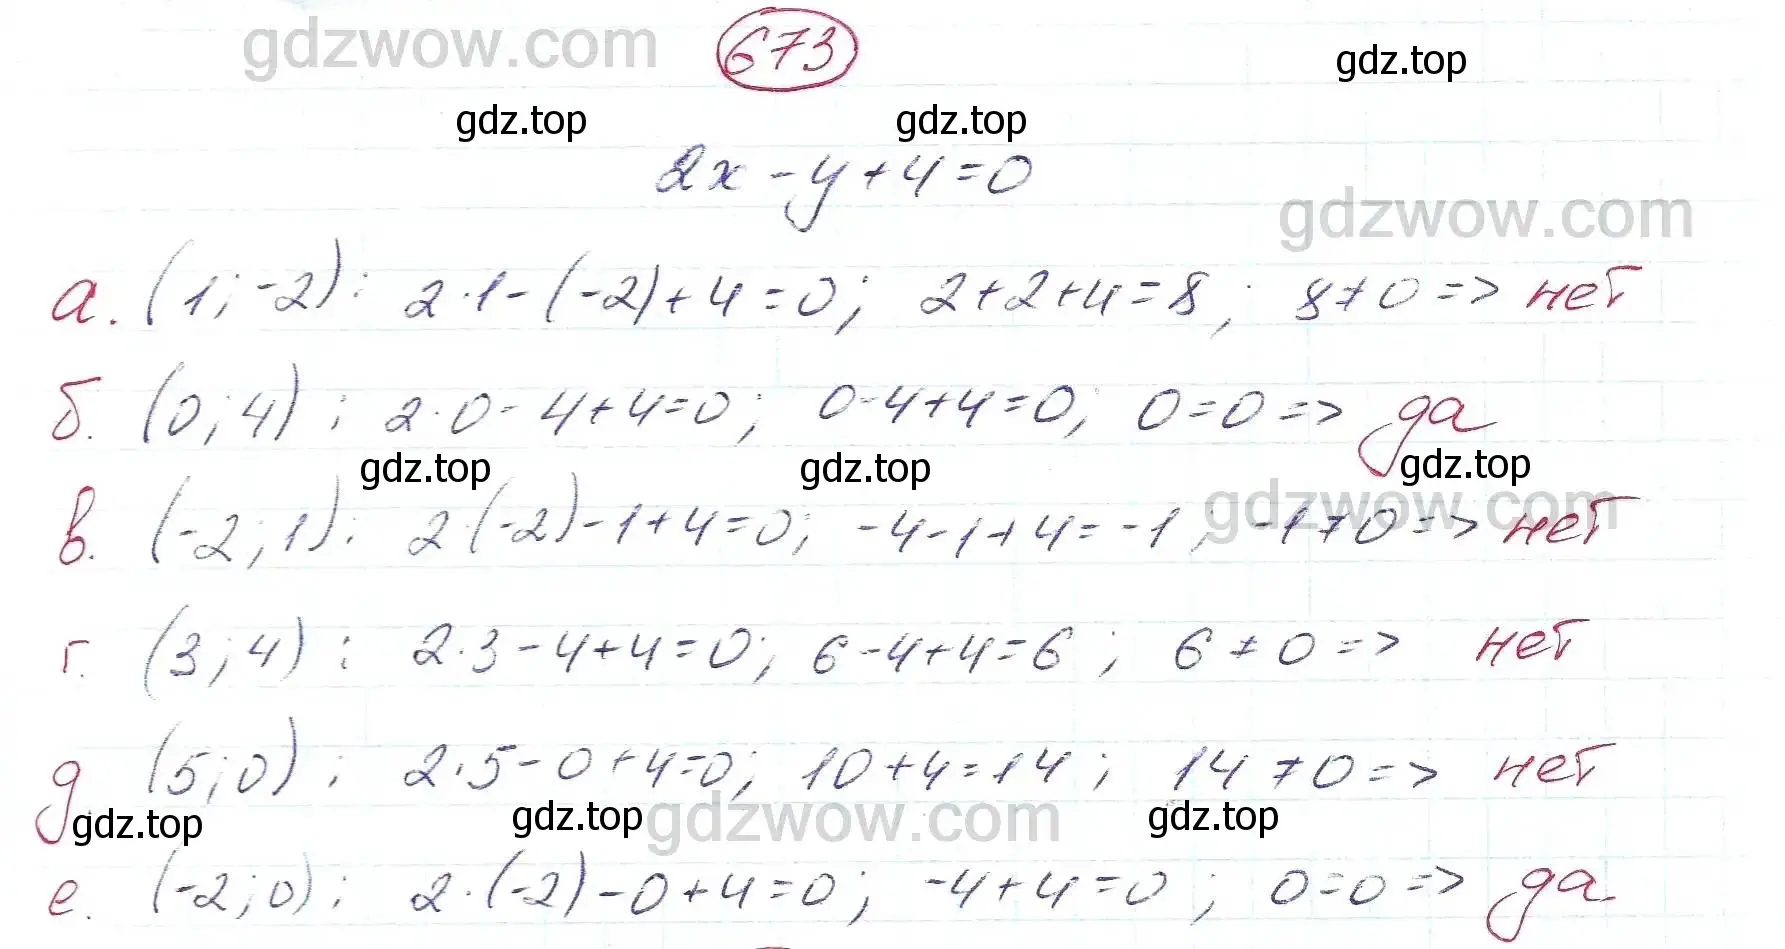 gdzwow.com 673 gdz.top
gdz.top gdz.top
2x - y + 4 = 0
gdzwow.com
а. (1; -2): 2·1 - (-2) + 4 = 0; 2+2+4=8; 8≠0 => нет
б. (0; 4): 2·0 - 4+4=0; 0-4+4=0; 0=0 => да
gdz.top gdz.top gdz.top
gdzwow.com
в. (-2; 1): 2·(-2)-1+4=0; -4-1+4=-1; -1≠0 => нет
г. (3; 4): 2·3-4+4=0; 6-4+4=6; 6≠0 => нет
д (5; 0): 2·5-0+4=0; 10+4=14; 14≠0 => нет
gdz.top gdz.top gdzwow.com gdz.top
е. (-2; 0): 2·(-2)-0+4=0; -4+4=0; 0=0 => да.